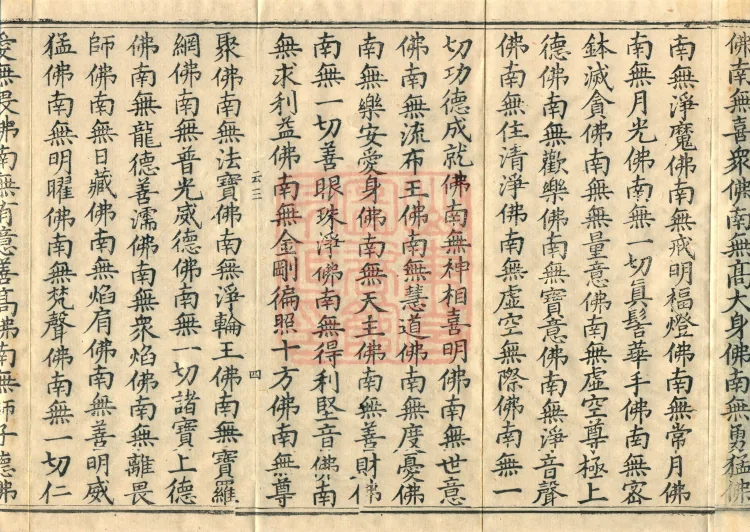 佛南無喜衆佛南無高大身佛南無勇猛佛
南無淨魔佛南無戒明福燈佛南無常月佛
南無月光佛南無一切真髻華手佛南無密
鉢滅貪佛南無無量意佛南無虛空尊極上
德佛南無歡樂佛南無寶意佛南無淨音聲
佛南無住清淨佛南無虛空無際佛南無一
切功德成就佛南無神相喜明佛南無世意
佛南無流布王佛南無慧道佛南無度憂佛
南無樂安愛身佛南無天主佛南無善財佛
南無一切善眼珠淨佛南無得利堅音佛南
無求利益佛南無金剛徧照十方佛南無尊
云三 四
聚佛南無法寶佛南無淨輪王佛南無寶羅
網佛南無普光威德佛南無一切諸寶上德
佛南無龍德善濡佛南無衆焰佛南無離畏
師佛南無日藏佛南無焰肩佛南無善明威
猛佛南無明曜佛南無梵聲佛南無一切仁
愛無畏佛南無有意善高佛南無師子德佛